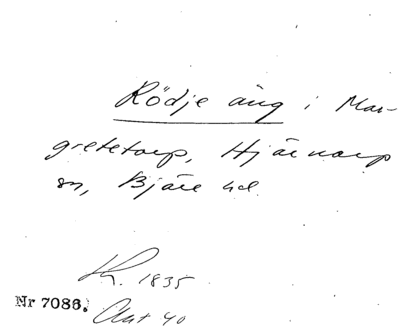 Rödje äng i Mar-
gretetorp, Hjärnarp
sn, Bjäre hd.
K. 1835
Nr 7086.
Akt 40